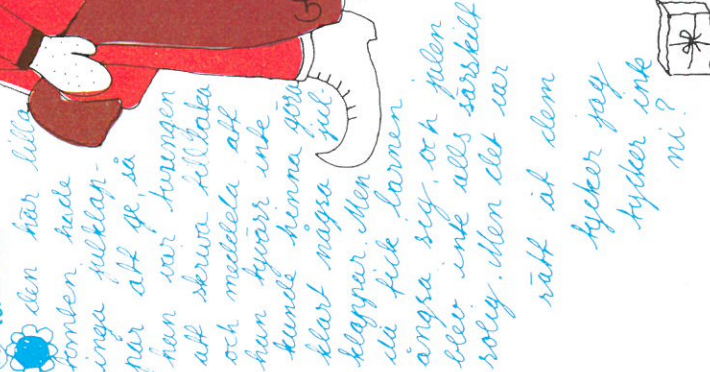 den här lilla
tomten hade
inga julklap-
par att ge, så
han var tvungen
att skriva tillbaka
och meddela att
han tyvärr inte
kunde hinna göra
klart några jul-
klappar. Men
då fick barnen
ångra sig, och julen
blev inte alls särskilt
rolig. Men det var
rätt åt dem
tycker jag
tycker inte
ni?